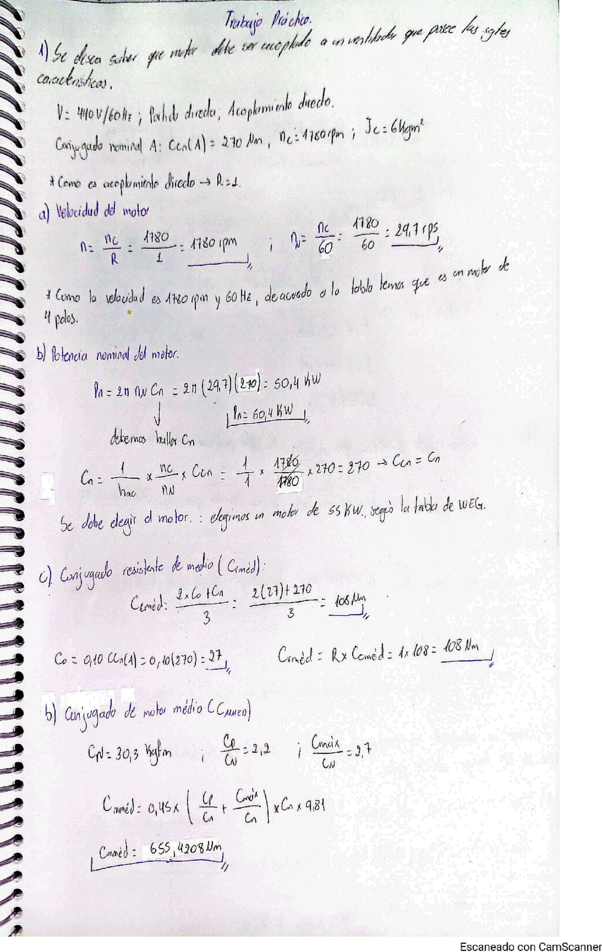 Trabajo Práctico.
1) Se desea saber que motor debe ser acoplado a un ventilador que posee las sgtes
características.
V = 440V/60Hz ; Partida directa, Acoplamiento directo.
Conjugado nominal A: Ccn(A) = 270 Nm, nc = 1780rpm ; Jc = 6Kgm²
* Como es acoplamiento directo → R=1.
a) Velocidad del motor
n = nc/R = 1780/1 = 1780 rpm ; nN = nc/60 = 1780/60 = 29,7 rps
* Como la velocidad es 1780 rpm y 60Hz, de acuerdo a la tabla temos que es un motor de
4 polos.
b) Potencia nominal del motor.
Pn = 2π nN Cn = 2π (29,7)(270) = 50,4 KW
↓ Pn = 50,4 KW
debemos hallar Cn
Cn = 1/nac × nc/nN × Ccn = 1/1 × 1780/1780 × 270 = 270 → Ccn = Cn
Se debe elegir el motor. : elegimos un motor de 55 KW, según la tabla de WEG.
c) Conjugado resistente de medio (Crméd):
Ccméd = 2×Co + Cn/3 = 2(27)+270/3 = 108 Nm
Co = 0,10 Ccn(A) = 0,10(270) = 27 Crméd = R × Ccméd = 1 × 108 = 108 Nm
b) Conjugado de motor médio (CMMED)
CN = 30,3 Kgfm ; Cp/CN = 2,2 ; Cmáx/CN = 2,7
Cmméd = 0,45 × (Cp/Cn + Cmáx/Cn) × Cn × 9,81
Cmméd = 655,4208 Nm
Escaneado con CamScanner